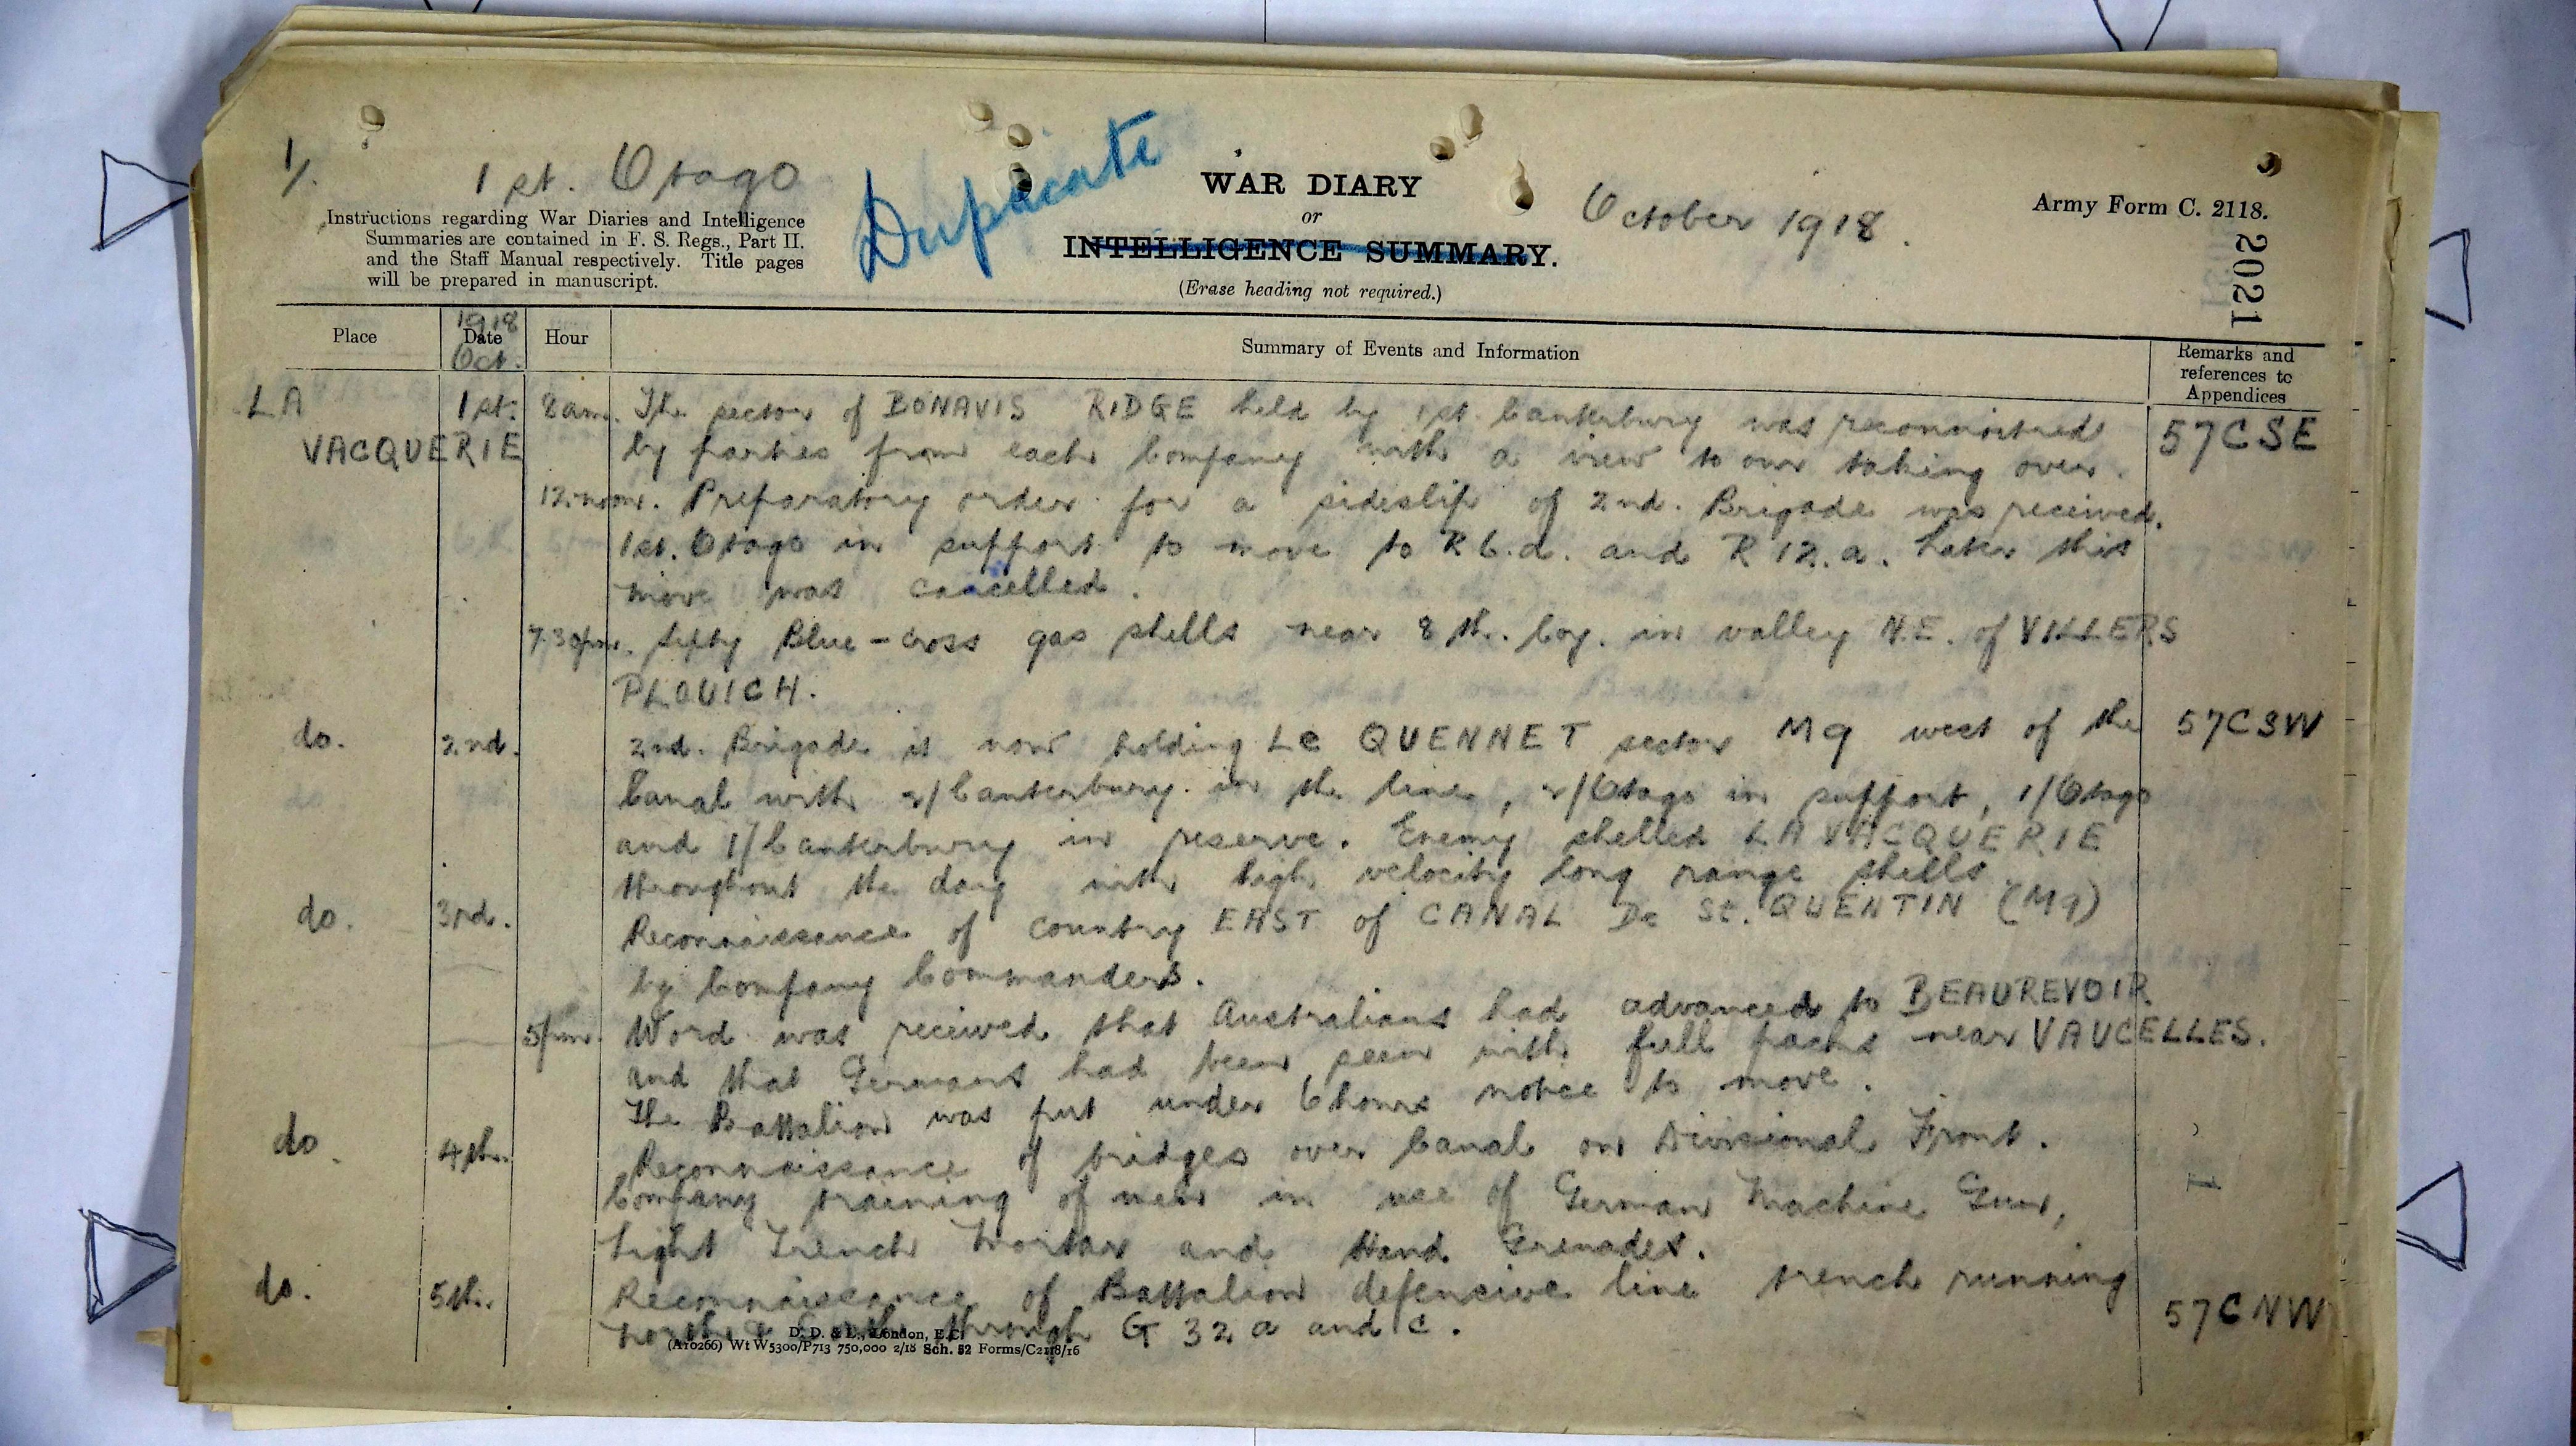 1/.
1 st. Otago
Duplicate
WAR DIARY
or
INTELLIGENCE SUMMARY.
(Erase heading not required.)
October 1918.
Army Form C. 2118.
2021
Instructions regarding War Diaries and Intelligence
Summaries are contained in F. S. Regs., Part II.
and the Staff Manual respectively. Title pages
will be prepared in manuscript.
Place
1918
Date
Oct.
Hour
Summary of Events and Information
Remarks and
references to
Appendices
LA 1st. 8 am. The sector of BONAVIS RIDGE held by 1st. Canterbury was reconnoitred 57CSE
VACQUERIE by parties from each Company with a view to our taking over.
12.noon. Preparatory order for a sideslip of 2nd. Brigade was received.
1st. Otago in support to move to R 6.d. and R 12.a. Later this
move was cancelled.
7.30pm. fifty Blue-cross gas shells near 8 th. Coy. in valley N.E. of VILLERS
PLOUICH.
do. 2nd. 2nd. Brigade is now holding Le QUENNET sector M9 west of the 57CSW
Canal with 2/Canterbury in the line, 2/Otago in support, 1/Otago
and 1/Canterbury in reserve. Enemy shelled LA VACQUERIE
throughout the day with high velocity long range shells.
do. 3rd. Reconnaissance of country EAST of CANAL De St. QUENTIN (M9)
by Company Commanders.
5pm. Word was received that Australians had advanced to BEAUREVOIR
and that Germans had been seen with full packs near VAUCELLES.
The Battalion was put under 6 hours notice to move.
do. 4th. Reconnaissance of bridges over Canal on Divisional Front.
Company training of men in use of German Machine Gun,
Light Trench Mortar and Hand Grenades.
do. 5th. Reconnaissance of Battalion defensive line trench running
north & South through G 32 a and c. 57CNW
D. D. & L., London, E.C.
(A10266) Wt W5300/P713 750,000 2/18 Sch. 52 Forms/C2118/16